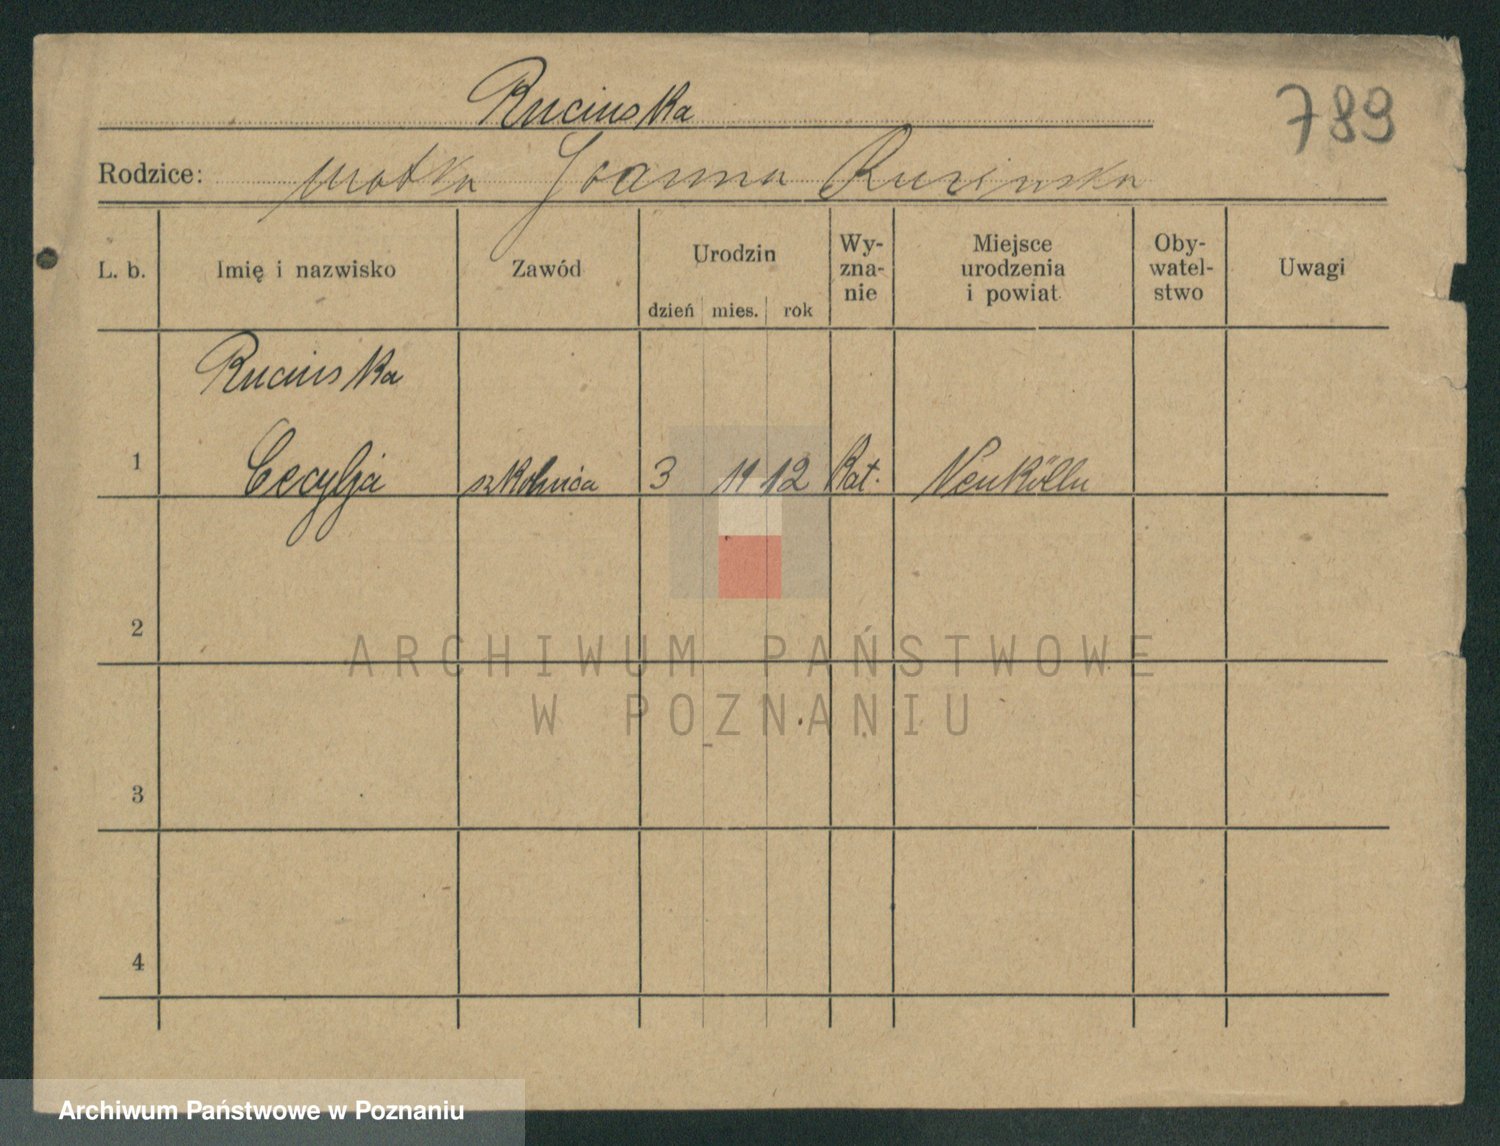 Rucinska
789
Rodzice: matka Joanna Rucinska
L. b.
Imię i nazwisko
Zawód
Urodzin
dzień mies. rok
Wy-
zna-
nie
Miejsce
urodzenia
i powiat
Oby-
watel-
stwo
Uwagi
Rucinska
1 Cecylja szkolnica 3 11 12 Kat. Neukölln
2
ARCHIWUM PAŃSTWOWE
W POZNANIU
3
4
Archiwum Państwowe w Poznaniu